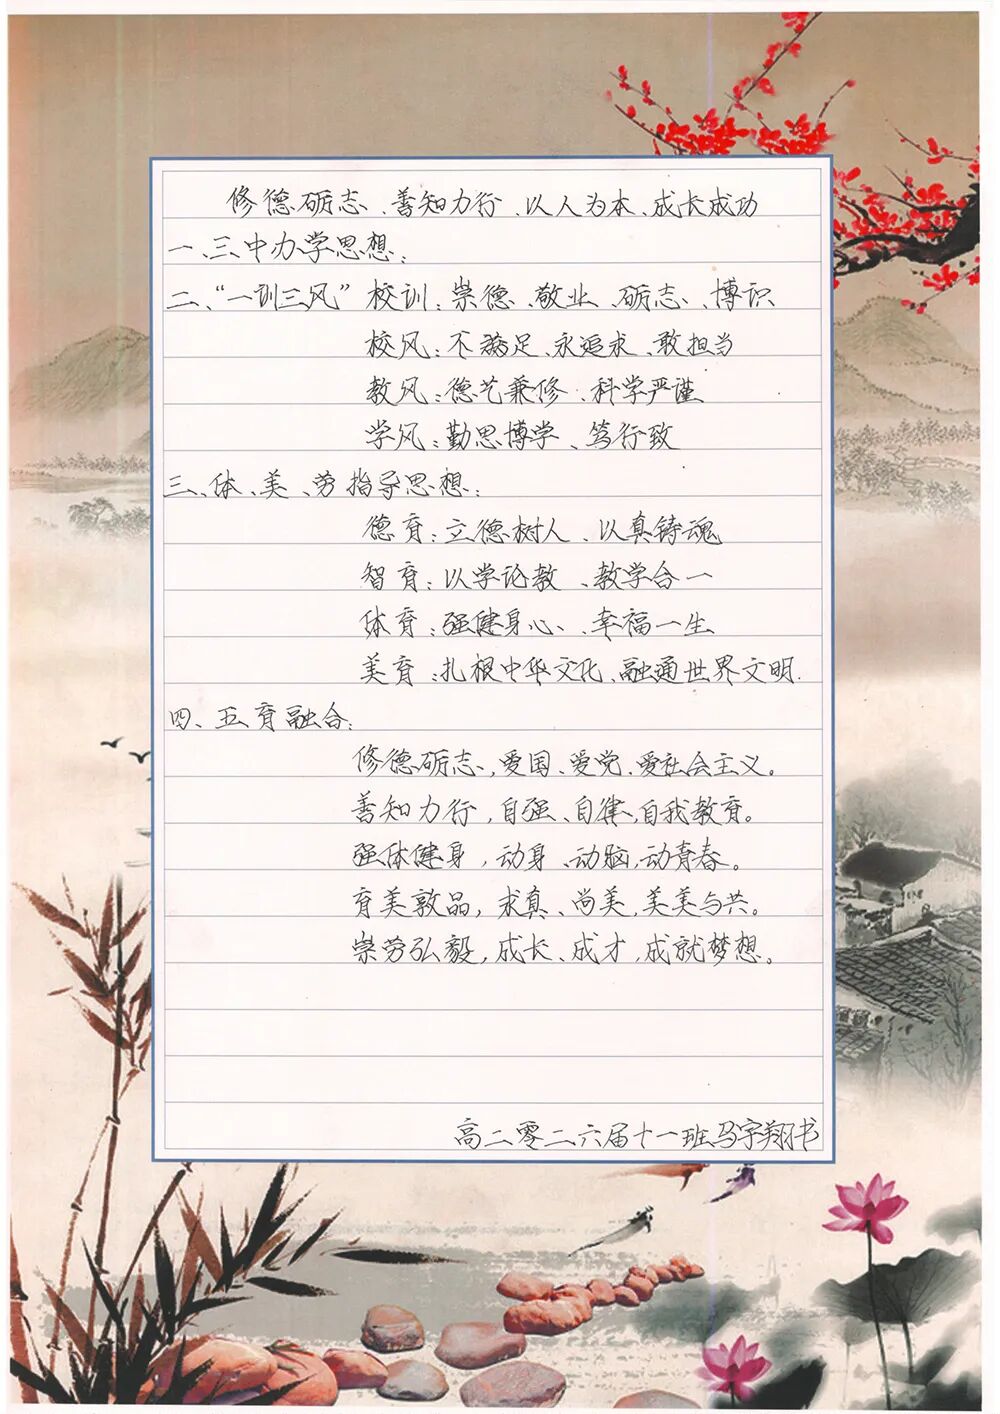 修德砺志、善知力行、以人为本、成长成功
一、三中办学思想：
二、“一训三风”校训：崇德、敬业、砺志、博识
校风：不满足、永追求、敢担当
教风：德艺兼修、科学严谨
学风：勤思博学、笃行致
三、体、美、劳指导思想：
德育：立德树人、以真铸魂
智育：以学论教、教学合一
体育：强健身心、幸福一生
美育：扎根中华文化、融通世界文明.
四、五育融合：
修德砺志，爱国、爱党、爱社会主义。
善知力行，自强、自律，自我教育。
强体健身，动身、动脑，动青春。
育美敦品，求真、尚美，美美与共。
崇劳弘毅，成长、成才，成就梦想。
高二零二六届十一班马宇翔书